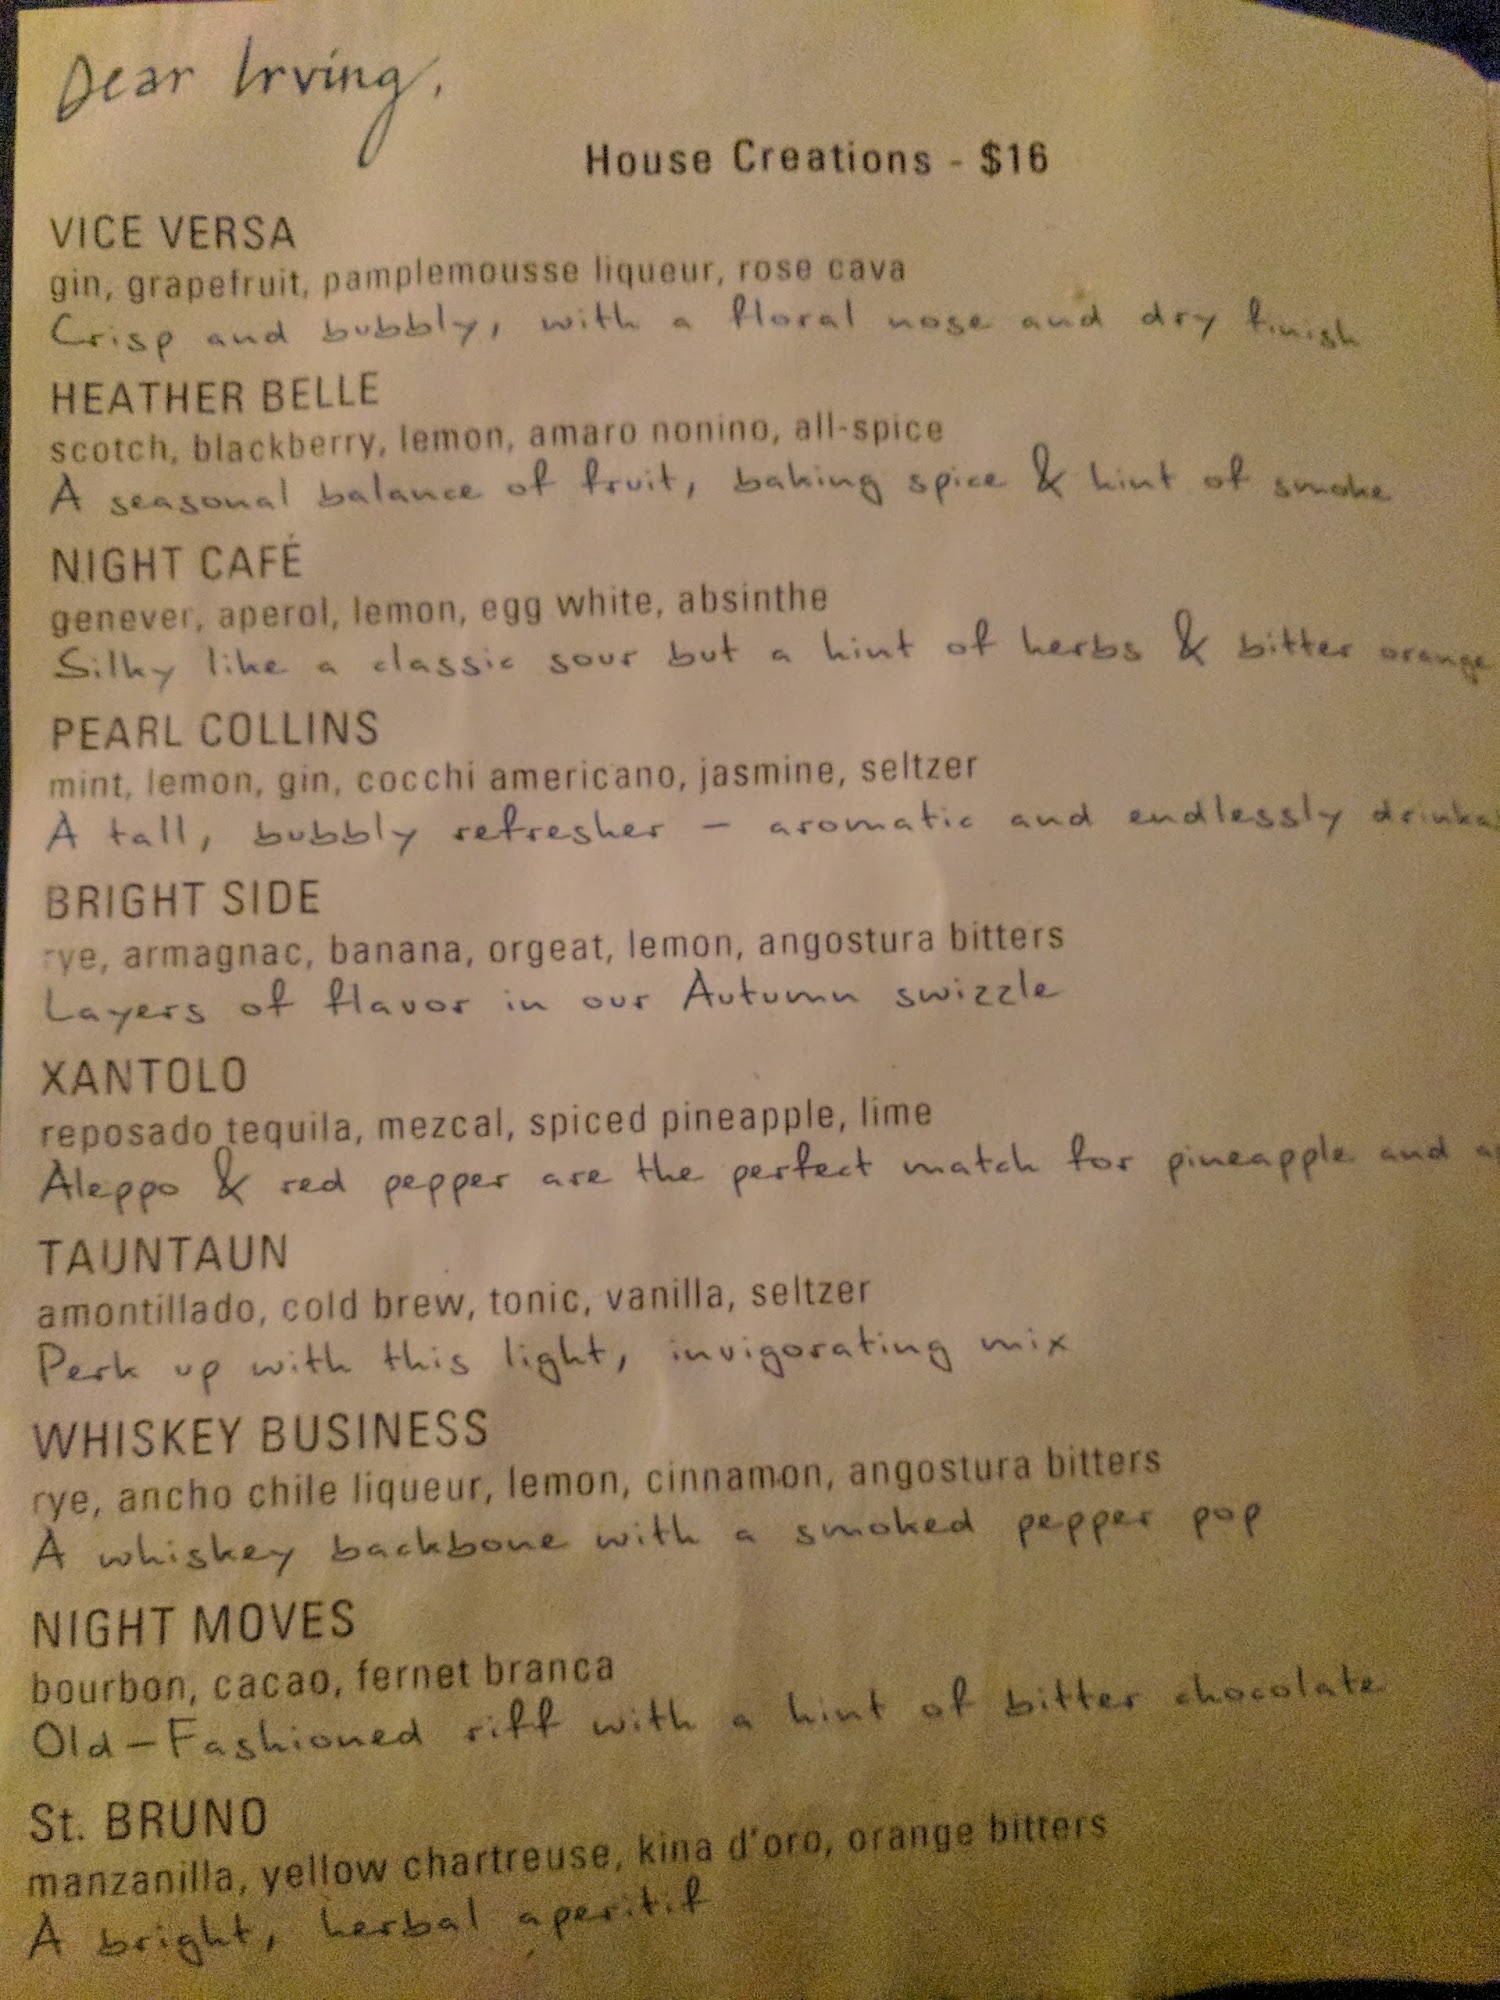 Dear Irving,
House Creations - $16
VICE VERSA
gin, grapefruit, pamplemousse liqueur, rose cava
Crisp and bubbly, with a floral nose and dry finish
HEATHER BELLE
scotch, blackberry, lemon, amaro nonino, all-spice
A seasonal balance of fruit, baking spice & hint of smoke
NIGHT CAFÉ
genever, aperol, lemon, egg white, absinthe
Silky like a classic sour but a hint of herbs & bitter orange
PEARL COLLINS
mint, lemon, gin, cocchi americano, jasmine, seltzer
A tall, bubbly refresher - aromatic and endlessly
BRIGHT SIDE
rye, armagnac, banana, orgeat, lemon, angostura bitters
Layers of flavor in our Autumn swizzle
XANTOLO
reposado tequila, mezcal, spiced pineapple, lime
Aleppo & red pepper are the perfect match for pineapple and
TAUNTAUN
amontillado, cold brew, tonic, vanilla, seltzer
Perk up with this light, invigorating mix
WHISKEY BUSINESS
rye, ancho chile liqueur, lemon, cinnamon, angostura bitters
A whiskey backbone with a smoked pepper pop
NIGHT MOVES
bourbon, cacao, fernet branca
Old-Fashioned riff with a hint of bitter chocolate
St. BRUNO
manzanilla, yellow chartreuse, kina d'oro, orange bitters
A bright, herbal aperitif